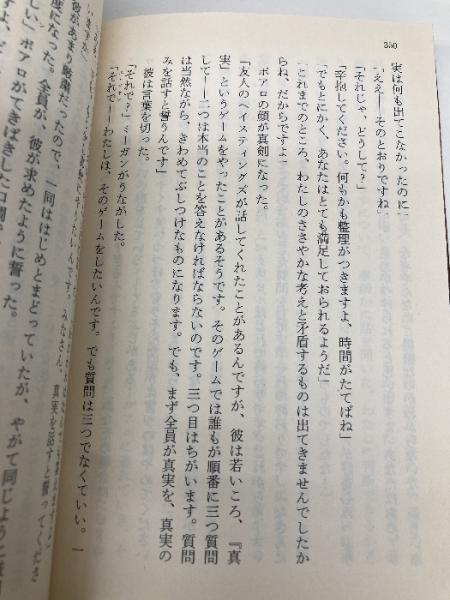 350
実は何も出てこなかったのに」
「ええ――そのとおりですね」
「それじゃ、どうして？」
「辛抱してください。何もかも整理がつきますよ、時間がたてばね」
「でもとにかく、あなたはとても満足しておられるようだ」
「これまでのところ、わたしのささやかな考えと矛盾するものは出てきませんでしたか
らね、だからですよ」
ポアロの顔が真剣になった。
「友人のヘイスティングズが話してくれたことがあるんですが、彼は若いころ、『真
実』というゲームをやったことがあるそうです。そのゲームでは誰もが順番に三つ質問
して――二つは本当のことを答えなければならないのです。三つ目はちがいます。質問
は当然ながら、きわめてぶしつけなものになります。でも、まず全員が真実を、真実の
みを話すと誓うんです」
彼は言葉を切った。
「それで？」ミーガンがうながした。
「それで――わたしは、そのゲームをしたいんです。でも質問は三つでなくていい。一
真実を話すと誓ってくださ
一同ははじめとまどっていたが、やがて同じように
度になった。全員が、彼が求めたように誓った。
ポアロがてきぱきした口調